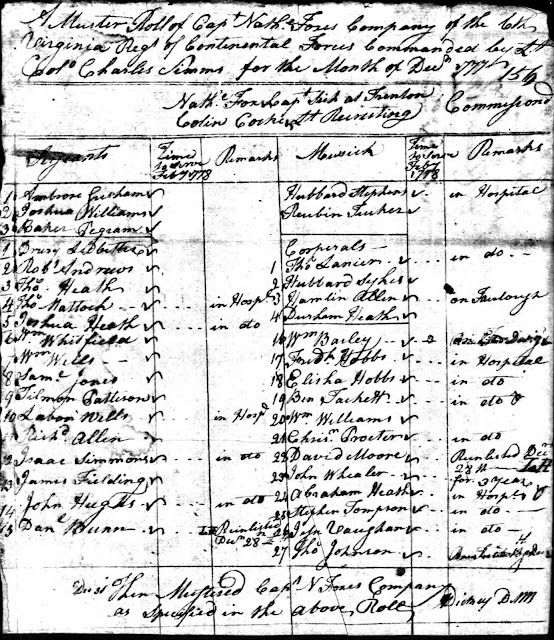 A Muster Roll of Capt Nath. Foxes Company of the 6th
Virginia Regt of Continental Forces Commanded by Lt
Colo Charles Simms for the Month of Decr 177
156
Nathl Fox Capt Sick at Trenton Commissiond
Colin Cocke Lt Recruiting
Sergeants Time to serve Feb 1778 Remarks
1 Ambrose Grisham
2 Joshua Williams
3 Baker Pegram
1 Drury Ledbetter
2 Robt Andrews
3 Tho. Heath
4 Tho. Mattock in Hospl
5 Joshua Heath in do
6 Wm Whitfield
7 Wm Wells
8 Saml Jones
9 Tilmon Patterson
10 Laban Wells in Hospl
11 Richd Allen
12 Isaac Simmons in do
13 James Fielding
14 John Hughs in do
15 Danl Bunn Reinlisted
Decr 28
Musick Time to serve Feb 1778 Remarks
Hubbard Stephens in Hospital
Reubin Tucker
Corporals
1 Tho. Lanier in do
2 Hubbard Sykes
3 Hamlin Allen on Furlough
4 Durham Heath
16 Wm Bailey
17 Fredk Hobbs in Hospital
18 Elisha Hobbs in do
19 Ben Tackett in do
20 Wm Williams
21 Chrisr Procter in do
22 David Moore Reinlisted Decr
23 John Whealer 28th
for 3 Years
24 Abraham Heath in Hospl
25 Stephen Tompson in do
26 Jno Vaughan in do
27 Tho. Johnson
Dec 31 Then Mustered Capt N Foxes Company
as Specified in the above Roll
Dickey D.MM